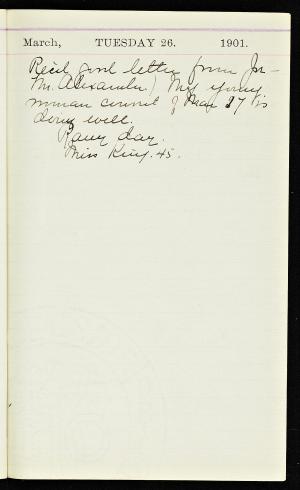 March, TUESDAY 26. 1901.
Rec'd good letter from Jn-
M. Alexander) My young
woman convert of Mar 17 is
doing well.
Rainy day.
Miss King. 45.